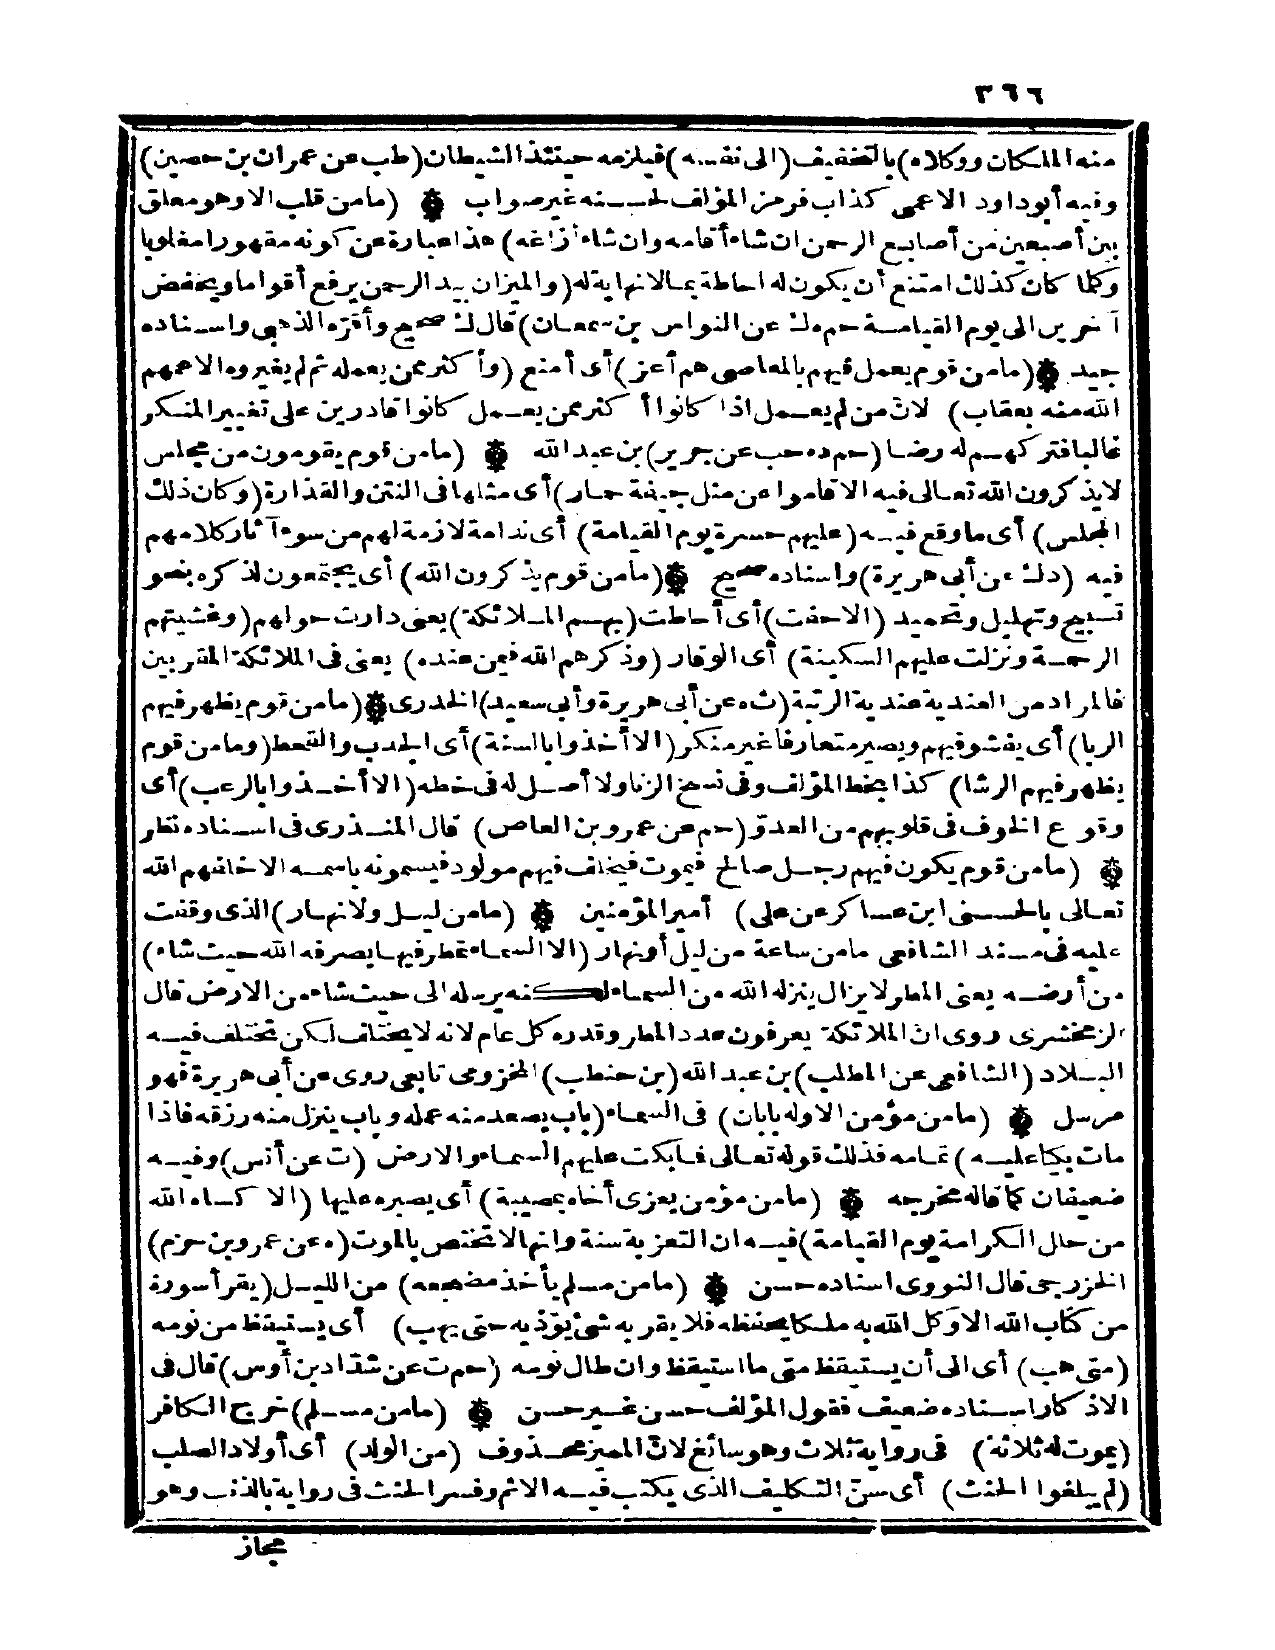 ٣٦٦
منه الملكان ووكلاه) بالتخفيف (الى نفسه) فيلزمه حينئذ الشيطان (طب عن عمران بن حصين)
وفيه أبو داود الاعمى كذاب فرمز المؤلف لحسنه غير صواب ۞ (ما من قلب الا وهو معلق
بين أصبعين من أصابع الرحمن ان شاء أقامه وان شاء أزاغه) هذا عبارة عن كونه مقهورا مغلوبا
وكلما كان كذلك امتنع أن يكون له احاطة بما لا نهاية له (والميزان بيد الرحمن يرفع أقواما ويخفض
آخرين الى يوم القيامة حم ه ك عن النواس بن سمعان) قال ك صحيح وأقره الذهبى واسناده
جيد ۞ (ما من قوم يعمل فيهم بالمعاصى هم أعز) أى أمنع (وأكثر ممن يعمله ثم لم يغيروه الا عمهم
الله منه بعقاب) لان من لم يعمل اذا كانوا أكثر ممن يعمل كانوا قادرين على تغيير المنكر
غالبا فتركهم له رضا (حم د ه حب عن جرير) بن عبد الله ۞ (ما من قوم يقومون من مجلس
لا يذكرون الله تعالى فيه الا قاموا عن مثل جيفة حمار) أى مثلها فى النتن والقذارة (وكان ذلك
المجلس) أى ما وقع فيه (عليهم حسرة يوم القيامة) أى ندامة لازمة لهم من سوء آثار كلامهم
فيه (د ك عن أبى هريرة) واسناده صحيح ۞ (ما من قوم يذكرون الله) أى يجتمعون لذكره بنحو
تسبيح وتهليل وتحميد (الا حفت) أى أحاطت (بهم الملائكة) يعنى دارت حولهم (وغشيتهم
الرحمة ونزلت عليهم السكينة) أى الوقار (وذكرهم الله فيمن عنده) يعنى فى الملائكة المقربين
فالمراد من العندية عندية الرتبة (ت ه عن أبى هريرة وأبى سعيد) الخدرى ۞ (ما من قوم يظهر فيهم
الربا) أى يفشو فيهم ويصير متعارفا غير منكر (الا أخذوا بالسنة) أى الجدب والقحط (وما من قوم
يظهر فيهم الرشا) كذا بخط المؤلف وفى نسخ الزنا ولا أصل له فى خطه (الا أخذوا بالرعب) أى
وقوع الخوف فى قلوبهم من العدوّ (حم عن عمرو بن العاص) قال المنذرى فى اسناده نظر
۞ (ما من قوم يكون فيهم رجل صالح فيموت فيخلف فيهم مولود فيسمونه باسمه الا خلفهم الله
تعالى بالحسنى ابن عساكر عن على) أمير المؤمنين ۞ (ما من ليل ولا نهار) الذى وقفت
عليه فى مسند الشافعى ما من ساعة من ليل أو نهار (الا السماء تمطر فيها يصرفه الله حيث شاء)
من أرضه يعنى المطر لا يزال ينزله الله من السماء لكنه يرسله الى حيث شاء من الارض قال
الزمخشرى روى ان الملائكة يعرفون عدد المطر وقدره كل عام لانه لا يختلف لكن تختلف فيه
البلاد (الشافعى عن المطلب) بن عبد الله (بن حنطب) المخزومى تابعى روى عن أبى هريرة فهو
مرسل ۞ (ما من مؤمن الا وله بابان) فى السماء (باب يصعد منه عمله وباب ينزل منه رزقه فاذا
مات بكيا عليه) تمامه فذلك قوله تعالى فما بكت عليهم السماء والارض (ت عن أنس) وفيه
ضعيفان كما قاله مخرجه ۞ (ما من مؤمن يعزى أخاه بمصيبة) أى يصبره عليها (الا كساه الله
من حلل الكرامة يوم القيامة) فيه ان التعزية سنة وانها لا تختص بالموت (ه عن عمرو بن حزم)
الخزرجى قال النووى اسناده حسن ۞ (ما من مسلم يأخذ مضجعه) من الليل (يقرأ سورة
من كتاب الله الا وكل الله به ملكا يحفظه فلا يقربه شئ يؤذيه حتى يهب) أى يستيقظ من نومه
(متى هب) أى الى أن يستيقظ متى ما استيقظ وان طال نومه (حم ت عن شداد بن أوس) قال فى
الاذكار اسناده ضعيف فقول المؤلف حسن غير حسن ۞ (ما من مسلم) خرج الكافر
(يموت له ثلاثة) فى رواية ثلاث وهو سائغ لانّ المميز محذوف (من الولد) أى أولاد الصلب
(لم يبلغوا الحنث) أى سنّ التكليف الذى يكتب فيه الاثم وفسر الحنث فى رواية بالذنب وهو
مجاز